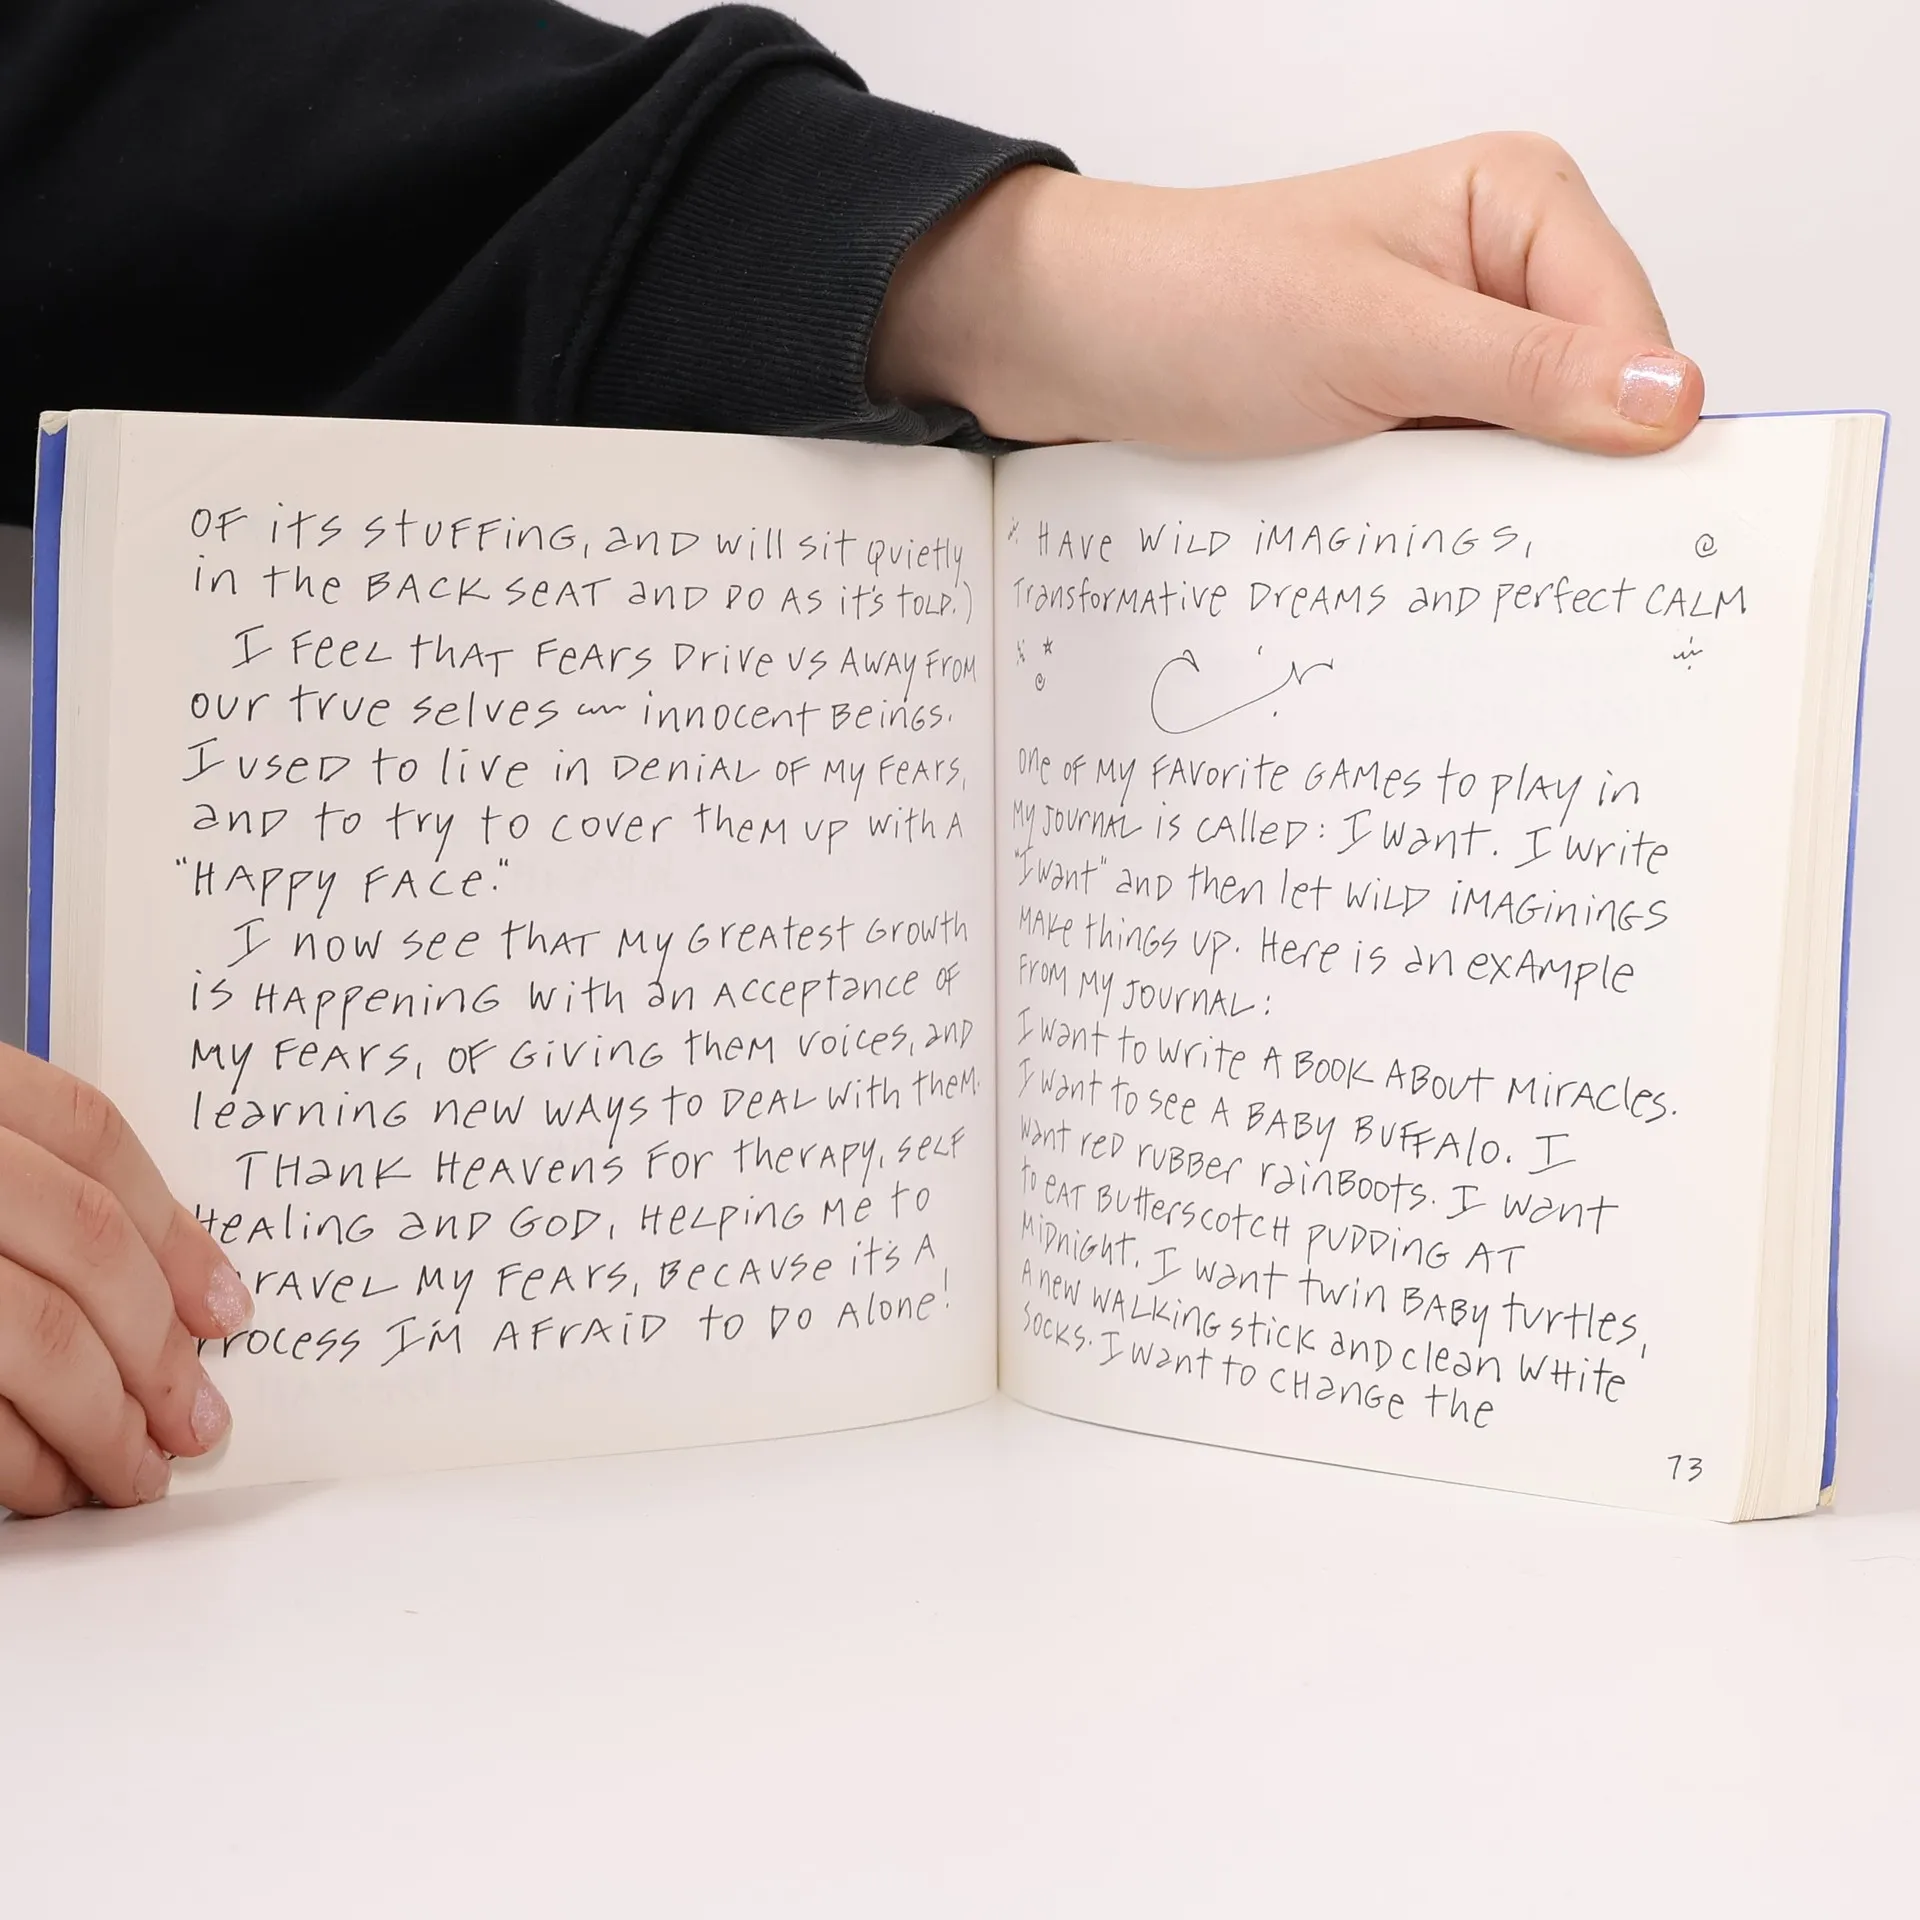 OF its stuffing, and will sit quietly
in the BACK seat and DO As it's told.)
I Feel that Fears Drive us Away From
our true selves innocent Beings.
I used to live in Denial of My Fears,
and to try to cover them up with A
"HAPPY FACE."
I now see that My Greatest Growth
is HAppening with an Acceptance of
My Fears, of Giving them voices, and
learning new ways to Deal with them.
Thank Heavens For therapy, self
Healing and GOD, Helping Me to
ravel My Fears, Because it's A
rocess I'm Afraid to Do Alone!
Have Wild imaginings,
Transformative Dreams and perfect CALM
one of My Favorite Games to play in
My Journal is called: I want. I write
"I want" and then let wild imaginings
Make things up. Here is an example
From My Journal:
I want to write A Book About Miracles.
I want to see A BABY BUFFAlo. I
want red rubber rainboots. I want
to eat Butterscotch pudding At
Midnight. I want twin BABY turtles,
A new walking stick and clean White
Socks. I want to change the
73